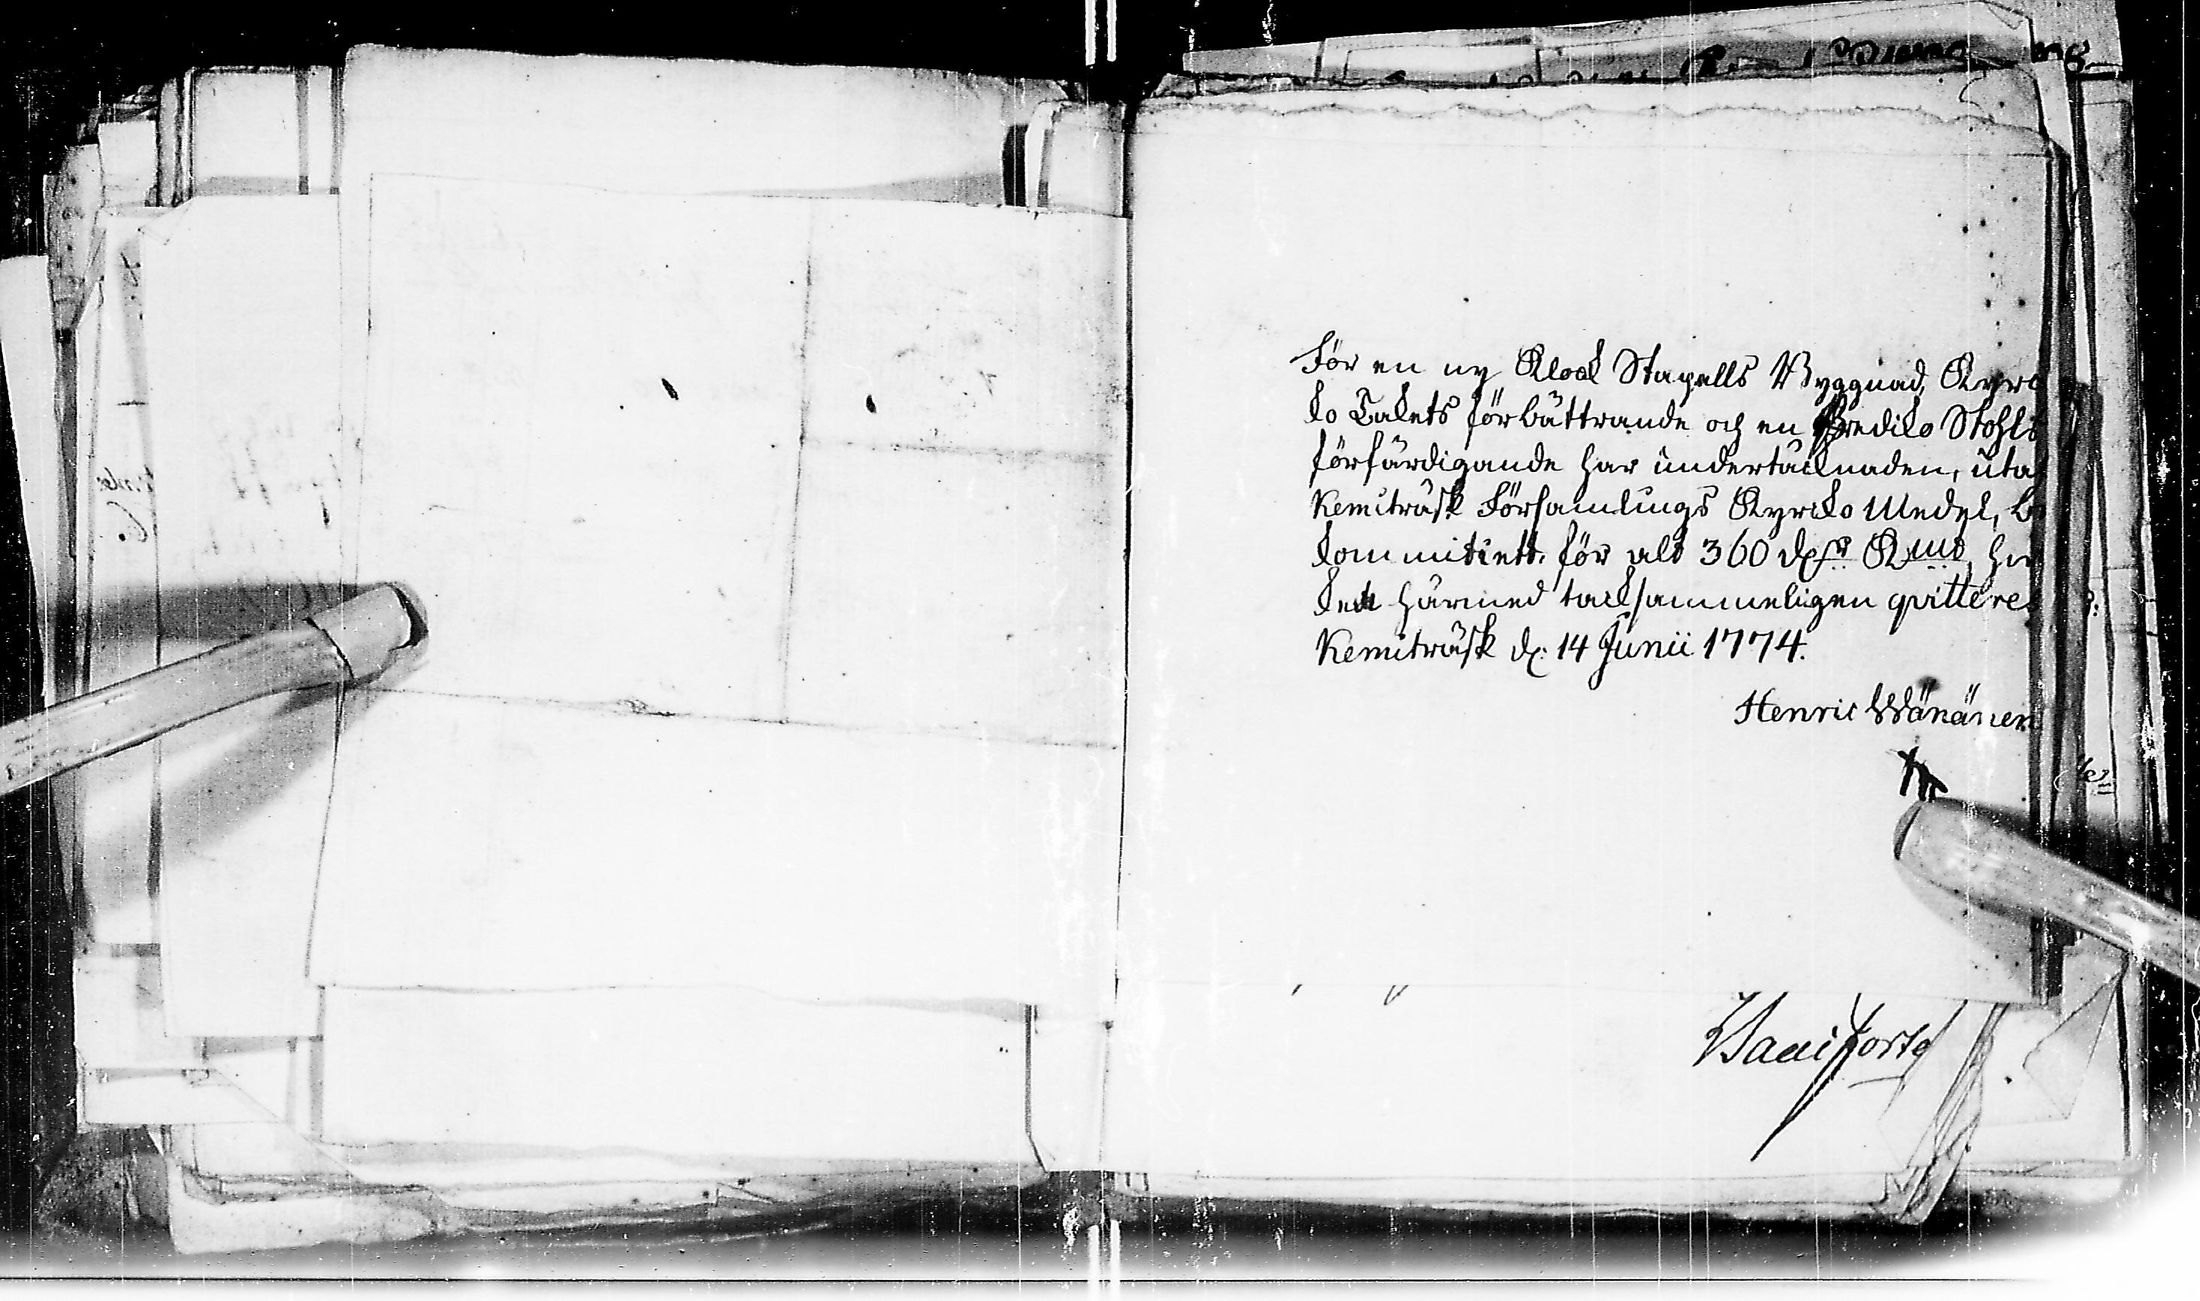 För en ny Klock Stapells Byggnad, Kyrc
ko Takets förbättrande och en Prediko Stohls
förfärdigande har undertäcknaden, uta
Kemiträsk Församlings Kyrcko Medel, b
kommit ett för alt 360 dlr Kmt, hvi
ket härmed tacksammeligen qvitteres
Kemiträsk d: 14 Junii 1774.
Henric Wänänen